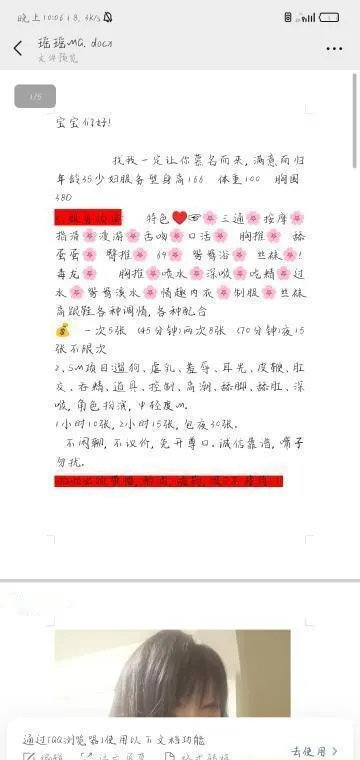 晚上10:06 | 8.4K/s
瑶瑶MG.docx
文件预览
1/5
宝宝们好!
找我一定让你慕名而来,满意而归
年龄35少妇服务型身高166 体重100 胸围
38D
特色❤️👉🌸三通🌸按摩🌸
指滑🌸漫游🌸舌吻🌸口活🌸 胸推🌸 舔
蛋蛋🌸 臀推🌸 69🌸 鸳鸯浴🌸 丝袜🌸!
毒龙🌸 胸推🌸吹水🌸深喉🌸吃精🌸过
水🌸鸳鸯漠水🌸情趣内衣🌸制服🌸丝袜
高跟鞋各种调情,各种配合
💰 一次5张 (45分钟)两次8张 (70分钟)夜15
张不限次
2,SM项目遛狗、虐乳、羞辱、耳光、皮鞭、肛
交、吞精、道具、控制、高潮、舔脚、舔肛、深
喉,角色扮演,中轻度M.
1小时10张,2小时15张,包夜30张.
不闲聊,不议价,免开尊口.诚信靠谱,嘴子
勿扰.
通过QQ浏览器使用以下文档功能
去使用 >